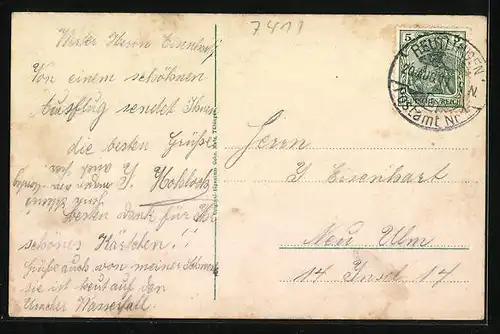 7411
Werter Herrn Eisenhart!
Von einem schöhnen
Ausflug sendet Ihnen
die besten Grüße
J. Kohloch
auch
besten dank für Ihr
schönes Kärtchen !!
Grüße auch von meiner Schwester
sie ist heut auf den
Uracher Wasserfall.
5
REUTLINGEN
Postamt Nr
DEUTSCHES REICH
Herrn
J Eisenhart
Neu Ulm
14 Insel 14